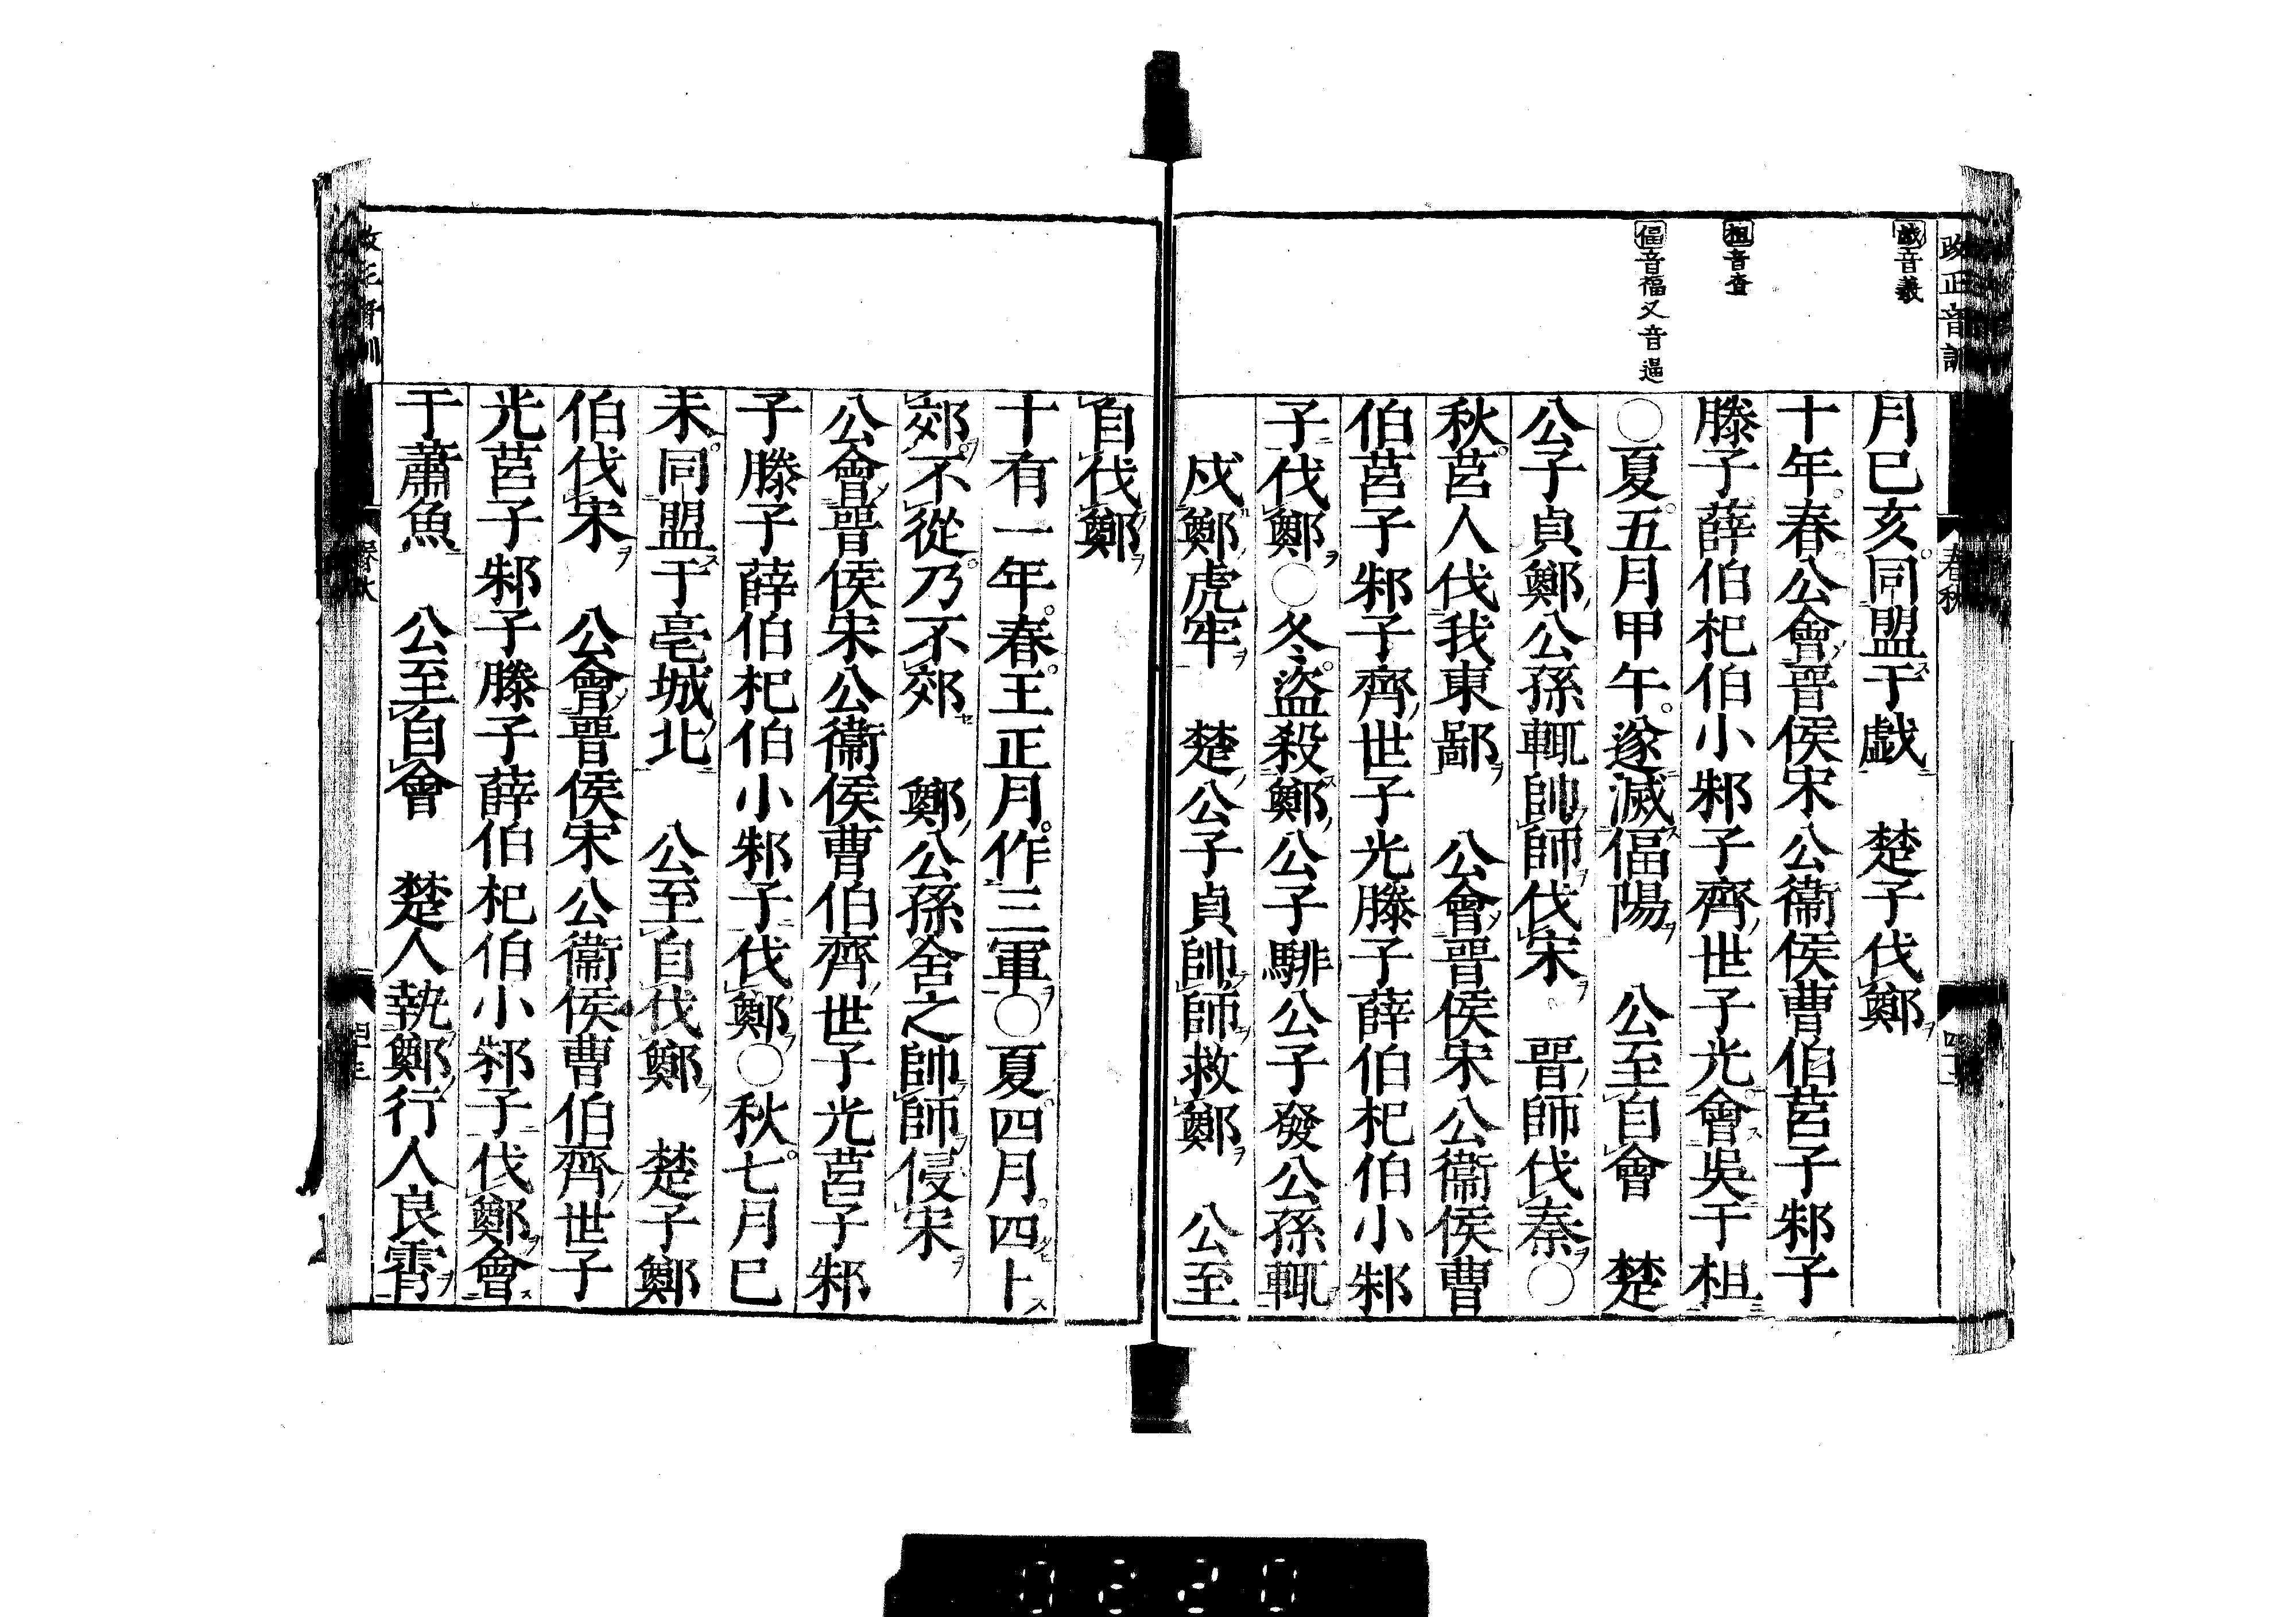 改正音訓
戯音羲
柤音査
偪音福又音逼
春秋
月己亥同盟于戯　楚子伐鄭
十年春公會晉侯宋公衞侯曹伯莒子邾子
滕子薛伯杞伯小邾子齊世子光會吳于柤
○夏五月甲午遂滅偪陽　公至自會　楚
公子貞鄭公孫輒帥師伐宋　晉師伐秦○
秋莒人伐我東鄙　公會晉侯宋公衞侯曹
伯莒子邾子齊世子光滕子薛伯杞伯小邾
子伐鄭○冬盜殺鄭公子騑公子發公孫輒
戍鄭虎牢　楚公子貞帥師救鄭　公至
自伐鄭
十有一年春王正月作三軍○夏四月四卜
郊不從乃不郊　鄭公孫舍之帥師侵宋
公會晉侯宋公衞侯曹伯齊世子光莒子邾
子滕子薛伯杞伯小邾子伐鄭○秋七月己
未同盟于亳城北　公至自伐鄭　楚子鄭
伯伐宋　公會晉侯宋公衞侯曹伯齊世子
光莒子邾子滕子薛伯杞伯小邾子伐鄭會
于蕭魚　公至自會　楚人執鄭行人良霄
0220